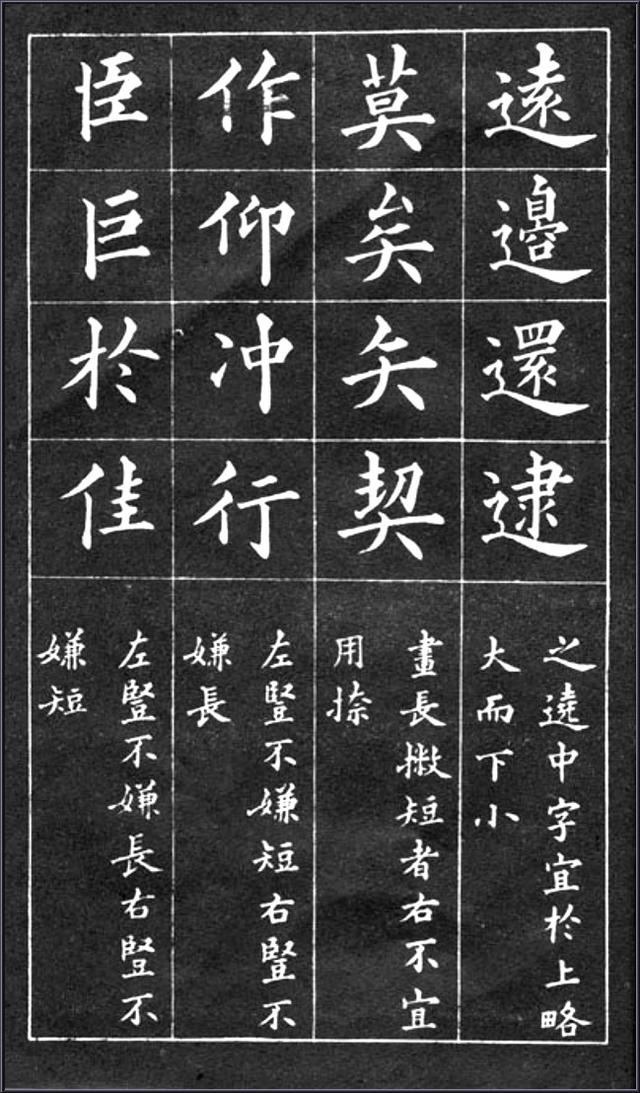 遠邊還逮
之遶中字宜於上略
大而下小
莫矣矢契
畫長撇短者右不宜
用捺
作仰冲行
左豎不嫌短右豎不
嫌長
臣巨於佳
左豎不嫌長右豎不
嫌短